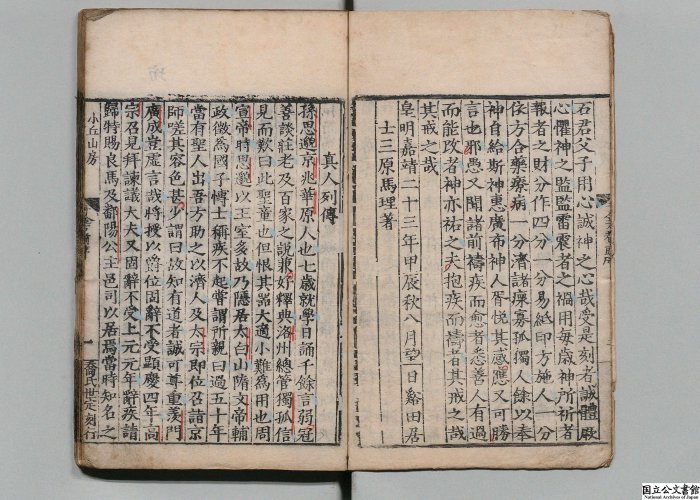 石君父子用心誠神之心哉受是刻者誠體厥
心懼神之監監雷震者之禍用毎歲神所祈者
報者之財分作四分一分易紙印方施人一分
依方合藥療病一分濟諸癃寡孤獨人餘以奉
神自給斯神惠廣布神人胥悅其感應又可勝
言也邪愚又聞諸前禱疾而愈者悉善人有過
而能改者神亦祐之夫抱疾而禱者其戒之哉
其戒之哉
皇明嘉靖二十三年甲辰秋八月望一日谿田居
士三原馬理著
真人列傳
孫思邈京兆華原人也七歲就學日誦千餘言弱冠
善談莊老及百家之說兼好釋典洛州總管獨孤信
見而歎曰此聖童也但恨其器大適小難為用也周
宣帝時思邈以王室多故乃隱居太白山隋文帝輔
政徵為國子博士稱疾不起嘗謂所親曰過五十年
當有聖人出吾方助之以濟人及太宗即位召詣京
師嗟其容色甚少謂曰故知有道者誠可尊重羨門
廣成豈虛言哉將授以爵位固辭不受顯慶四年高
宗召見拜諫議大夫又固辭不受上元元年辭疾請
歸特賜良馬及鄱陽公主邑司以居焉當時知名之
小丘山房 一 喬氏世定刻行
国立公文書館
National Archives of Japan